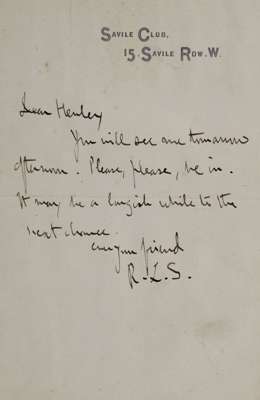 SAVILE CLUB,
15. SAVILE ROW. W.
Dear Henley
You will see me tomorrow
afternoon. Please, please, be in.
It may be a longish while to the
next chance.
ever your friend
R. L. S.